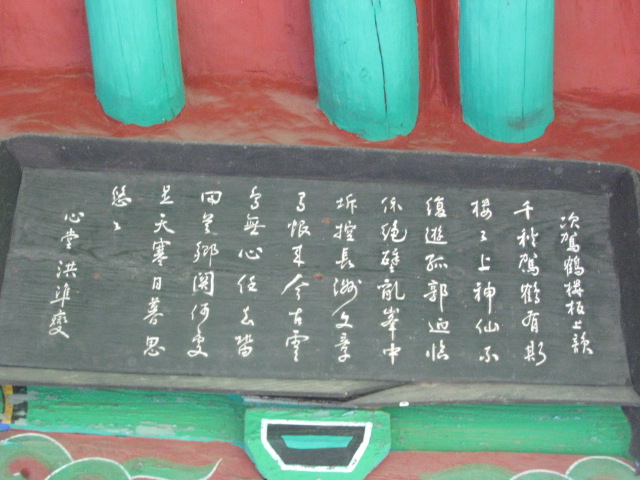 次駕鶴樓板上韻
千秋駕鶴有斯
樓〻上神仙不
復遊孤郭迥臨
依絶壁亂峯中
坼控長洲文章
有恨來今古雲
鳥無心任去留
回首鄕關何處
是天寒日暮思
悠〻
心堂 洪準燮